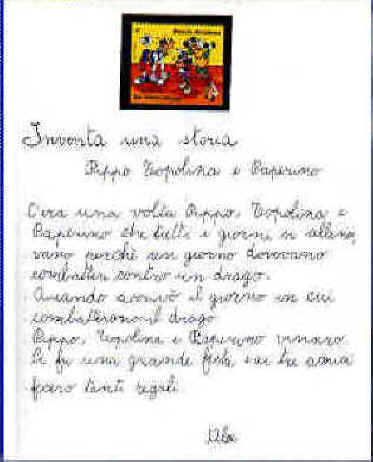 Inventa una storia
Pippo Topolina e Paperino
C'era una volta Pippo, Topolina e
Paperino che tutti i giorni si allena
vano perchè un giorno dovevano
combattere contro un drago.
Quando arrivò il giorno in cui
combatterono il drago
Pippo, Topolina e Paperino vinsero.
Ci fu una grande festa e ai tre amici
fecero tanti regali.